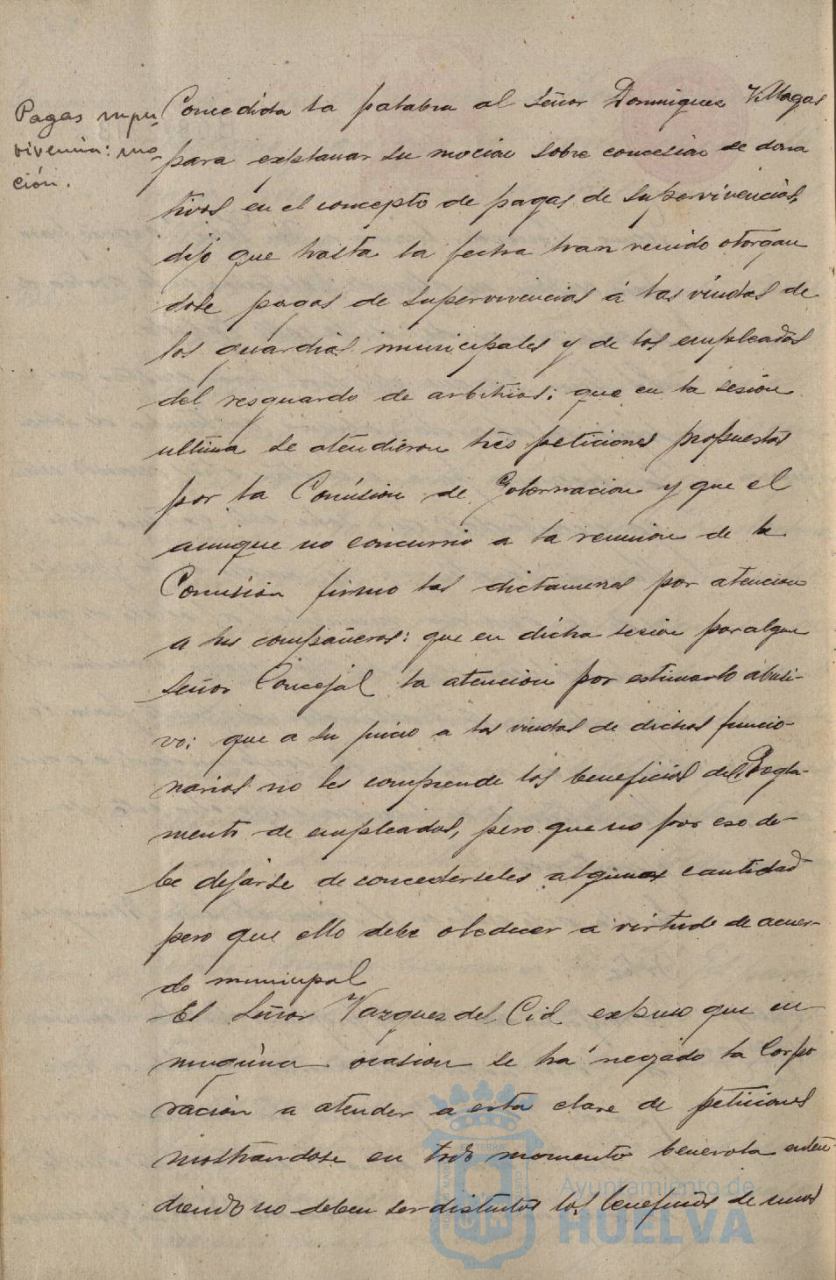 Pagas supu-
vivencia: mo-
ción.
Concedida la palabra al Señor Dominguez Villegas
para explanar su mocion sobre concesion de dona
tivos en el concepto de pagas de supervivencias,
dijo que hasta la fecha han venido otorgan
dose pagas de supervivencias á las viudas de
los guardias municipales y de los empleados
del resguardo de arbitrios; que en la sesión
ultima se atendieron tres peticiones propuestas
por la Comision de Gobernacion y que el
aunque no concurrio a la reunion de la
Comisión firmo los dictamenes por atencion
a sus compañeros: que en dicha sesion por algun
Señor Concejal la atencion por estimarlo abusi-
vo; que a su juicio a las viudas de dichos funcio-
narios no les comprende los beneficios del Regla-
mento de empleados, pero que no por eso de-
be dejarse de concederseles algunas cantidad
pero que ello debe obedecer a virtud de acuer-
do municipal
El Señor Vazquez del Cid expuso que en
ninguna ocasion se ha negado la Corpo
ración a atender a esta clase de peticiones
mostrandose en todo momento benevola enten
diendo no deben ser distintos los beneficios de unos
Ayuntamiento de
HUELVA